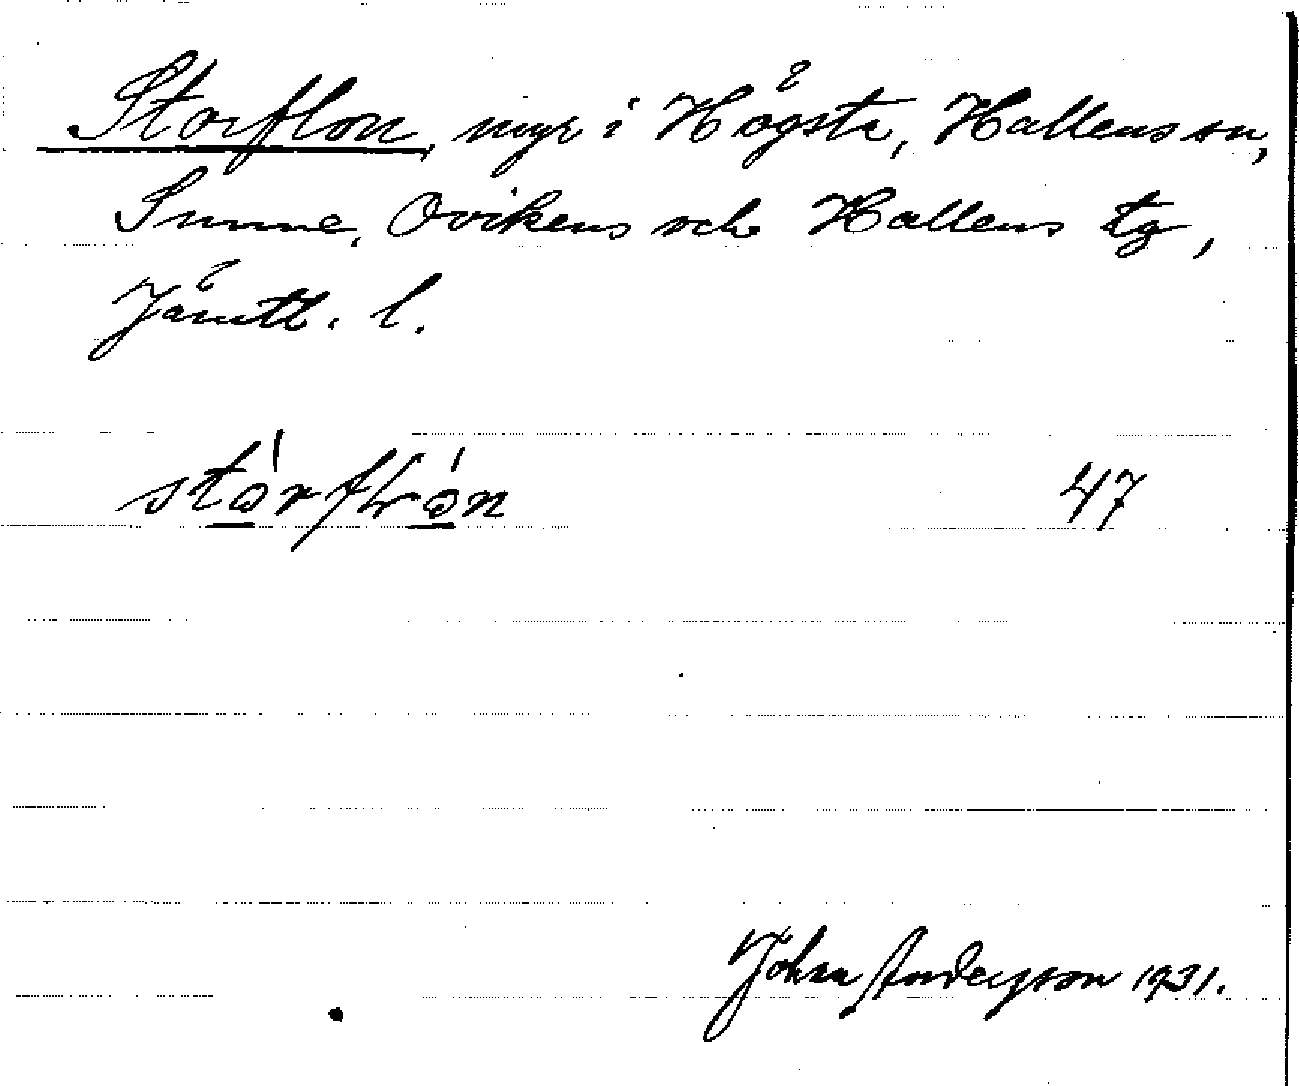 Storflon, myr i Högsta, Hallens sn,
Sunne, Ovikens och Hallens tg,
Jämtl. l.
47
Johan Andersson 1931.